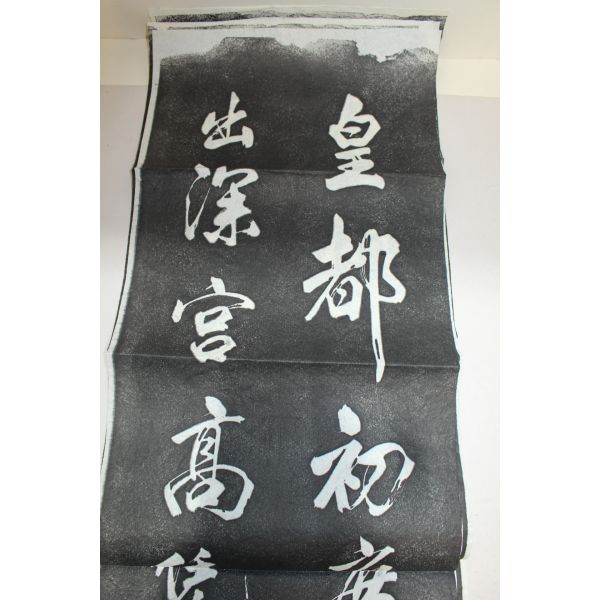 皇都初
出深宮高